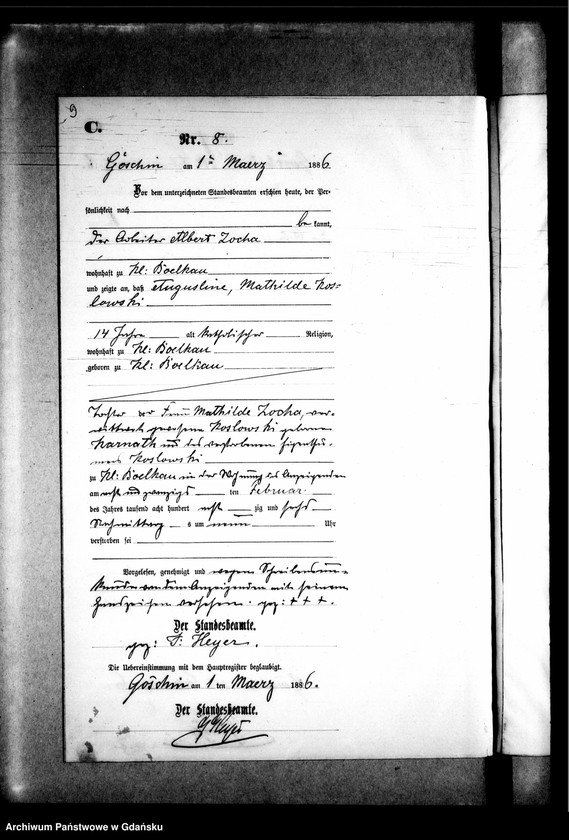 9
C.
Nr. 8.
Göschin am 1ten Maerz 1886
Vor dem unterzeichneten Standesbeamten erschien heute, der Per-
sönlichkeit nach
be kannt,
der Arbeiter Albert Zocha
wohnhaft zu Kl: Boelkau
und zeigte an, daß Auguste, Mathilde Kos-
lowski
14 Jahre alt katholischer Religion,
wohnhaft zu Kl: Boelkau
geboren zu Kl: Boelkau
Tochter der Frau Mathilde Zocha, ver-
wittwet gewesene Koslowski geborene
Karnath und des verstorbenen Eigenthü-
mers Koslowski
zu Kl: Boelkau in der Wohnung des Anzeigenden
am acht und zwanzigs ten Februar
des Jahres tausend acht hundert acht zig und sechs
Nachmittag s um neun Uhr
verstorben sei
Vorgelesen, genehmigt und wegen Schreibensun-
kunde von dem Anzeigenden mit seinem
Handzeichen versehen. gez: + + +.
Der Standesbeamte.
gez: F: Heyer.
Die Uebereinstimmung mit dem Hauptregister beglaubigt.
Göschin am 1 ten Maerz 1886.
Der Standesbeamte.
Heyer
Archiwum Państwowe w Gdańsku